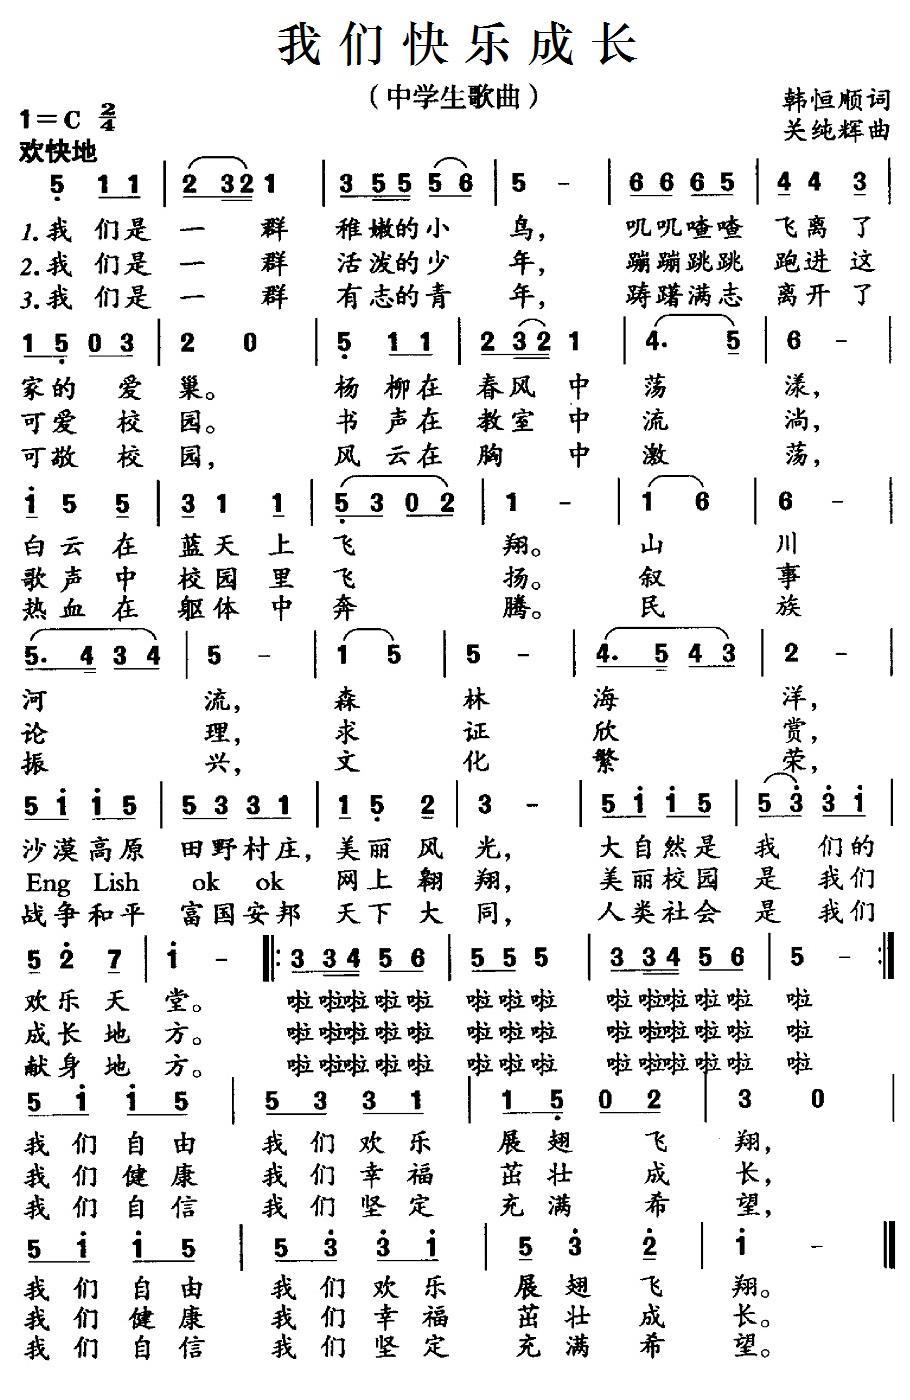 我们快乐成长
（中学生歌曲）
韩恒顺词
1=C 2/4
关纯辉曲
欢快地
5 1 1 | 2 3 2 1 | 3 5 5 5 6 | 5 - | 6 6 6 5 | 4 4 3 |
1.我 们是 一 群 稚嫩的小 鸟， 叽叽喳喳 飞离了
2.我 们是 一 群 活泼的少 年， 蹦蹦跳跳 跑进这
3.我 们是 一 群 有志的青 年， 踌躇满志 离开了
1 5 0 3 | 2 0 | 5 1 1 | 2 3 2 1 | 4. 5 | 6 - |
家的 爱 巢。 杨 柳在 春风 中 荡 漾，
可爱 校 园。 书 声在 教室 中 流 淌，
可敬 校 园， 风 云在 胸 中 激 荡，
i 5 5 | 3 1 1 | 5 3 0 2 | 1 - | 1 6 | 6 - |
白云在 蓝天上 飞 翔。 山 川
歌声中 校园里 飞 扬。 叙 事
热血在 躯体中 奔 腾。 民 族
5. 4 3 4 | 5 - | 1 5 | 5 - | 4. 5 4 3 | 2 - |
河 流， 森 林 海 洋，
论 理， 求 证 欣 赏，
振 兴， 文 化 繁 荣，
5 i i 5 | 5 3 3 1 | 1 5 2 | 3 - | 5 i i 5 | 5 3 3 i |
沙漠高原 田野村庄， 美丽 风 光， 大自然是 我 们的
Eng Lish ok ok 网上 翱 翔， 美丽校园 是 我们
战争和平 富国安邦 天下 大 同， 人类社会 是 我们
5 2 7 | i - |: 3 3 4 5 6 | 5 5 5 | 3 3 4 5 6 | 5 - :|
欢乐 天 堂。 啦 啦啦 啦 啦 啦啦啦 啦 啦啦 啦 啦 啦
成长 地 方。 啦 啦啦 啦 啦 啦啦啦 啦 啦啦 啦 啦 啦
献身 地 方。 啦 啦啦 啦 啦 啦啦啦 啦 啦啦 啦 啦 啦
5 i i 5 | 5 3 3 1 | 1 5 0 2 | 3 0 |
我 们 自 由 我 们 欢 乐 展 翅 飞 翔，
我 们 健 康 我 们 幸 福 茁 壮 成 长，
我 们 自 信 我 们 坚 定 充 满 希 望，
5 i i 5 | 5 3 3 i | 5 3 2 | i - ‖
我 们 自 由 我 们 欢 乐 展 翅 飞 翔。
我 们 健 康 我 们 幸 福 茁 壮 成 长。
我 们 自 信 我 们 坚 定 充 满 希 望。